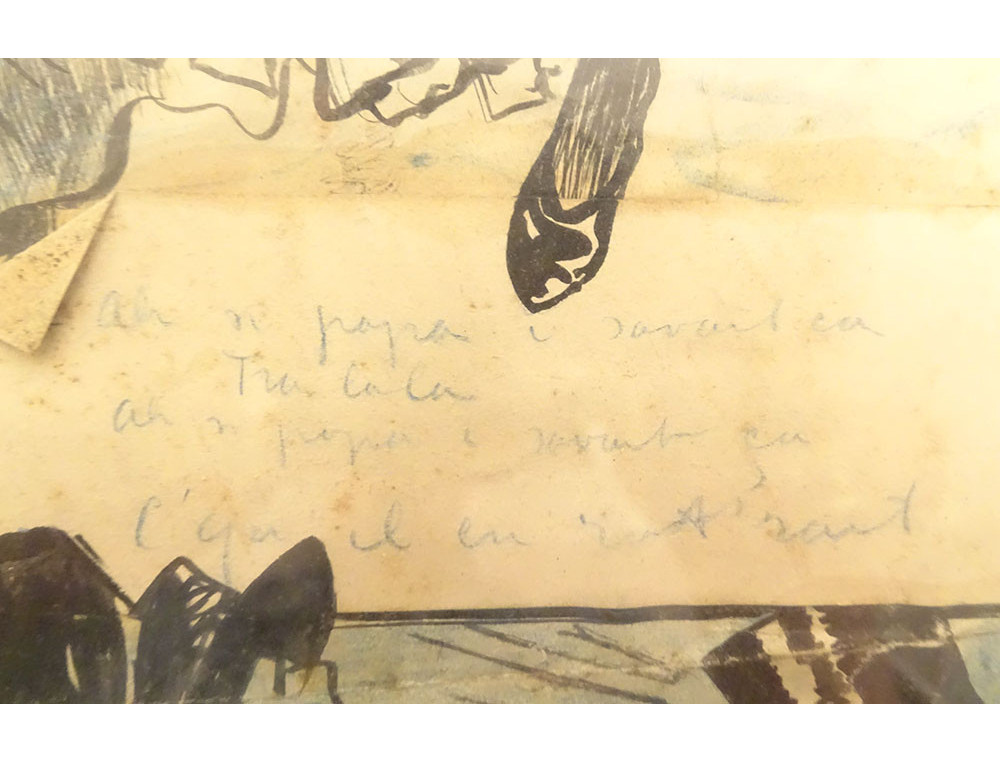 Ah si papa i savait ça
Tra la la
Ah si papa i savait ça
C'qu'il en rest'rait